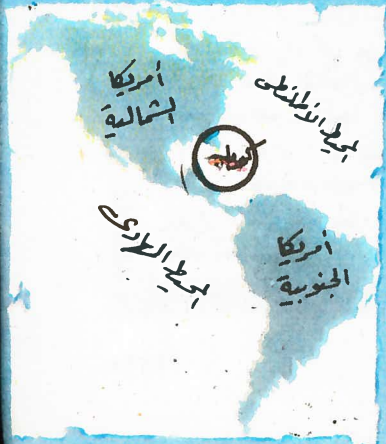 أمريكا
الشمالية
المحيط الأطلنطى
كوبا
المحيط الهادى
أمريكا
الجنوبية